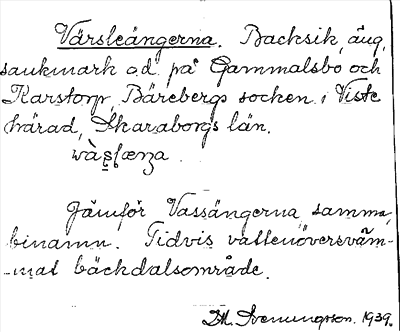 Värsleängerna. Backsik, äng,
sankmark o.d. på Gammalsbo och
Karstorp, Bärebergs socken i Viste
härad, Skaraborgs län.
Jämför Vassängerna, samma
binamn. Tidvis vattenöversväm-
-mat bäckdalsområde.
1939.